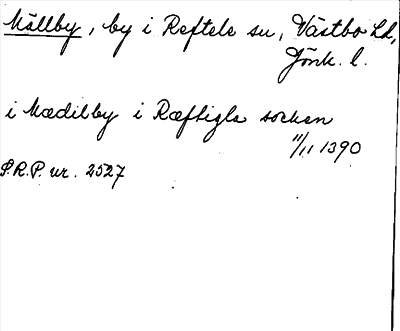 Mällby, by i Reftele sn, Västbo hd,
Jönk. l.
i Mædilby i Ræftigla socken
11/11 1390
S.R.P. nr. 2527